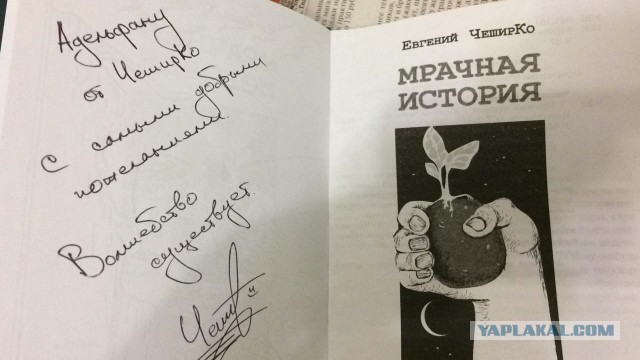 Адельфану
от ЧеширКо
С самыми добрыми
пожеланиями.
Волшебство
существует.
Чеши
Евгений ЧеширКо
МРАЧНАЯ
ИСТОРИЯ
YAPLAKAL.COM